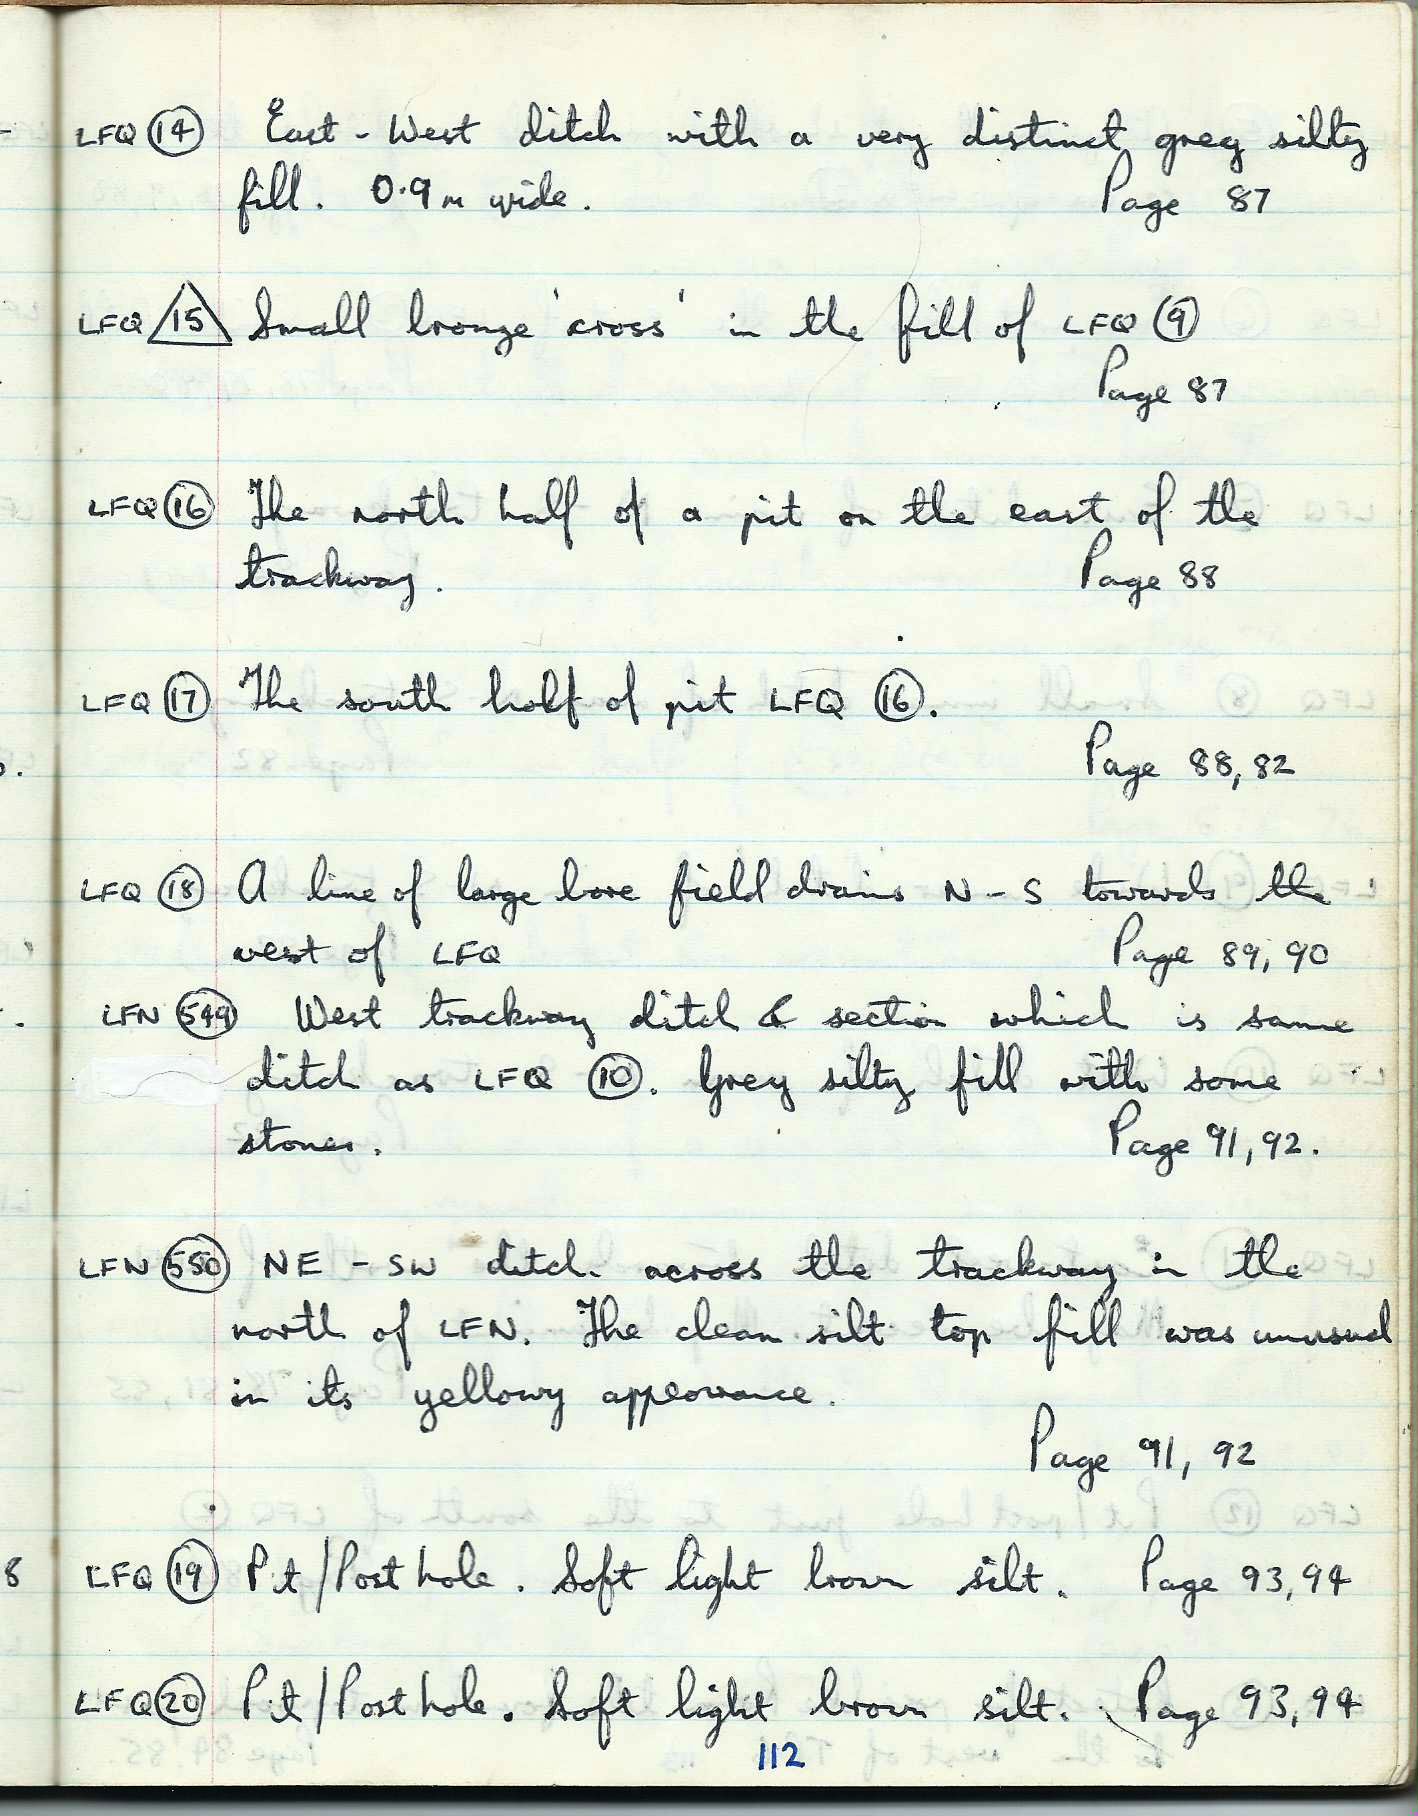 LFQ 14 East - West ditch with a very distinct grey silty
fill. 0.9m wide. Page 87
LFQ 15 Small bronze 'cross' in the fill of LFQ 9
Page 87
LFQ 16 The north half of a pit on the east of the
trackway. Page 88
LFQ 17 The south half of pit LFQ 16.
Page 88, 82
LFQ 18 A line of large bore field drains N - S towards the
west of LFQ Page 89, 90
LFN 549 West trackway ditch & section which is same
ditch as LFQ 10. Grey silty fill with some
stones. Page 91, 92.
LFN 550 NE - SW ditch across the trackway in the
north of LFN. The clean silt top fill was unusual
in its yellowy appearance.
Page 91, 92
8 LFQ 19 Pit/Post hole. Soft light brown silt. Page 93, 94
LFQ 20 Pit/Post hole. Soft light brown silt. Page 93, 94
112